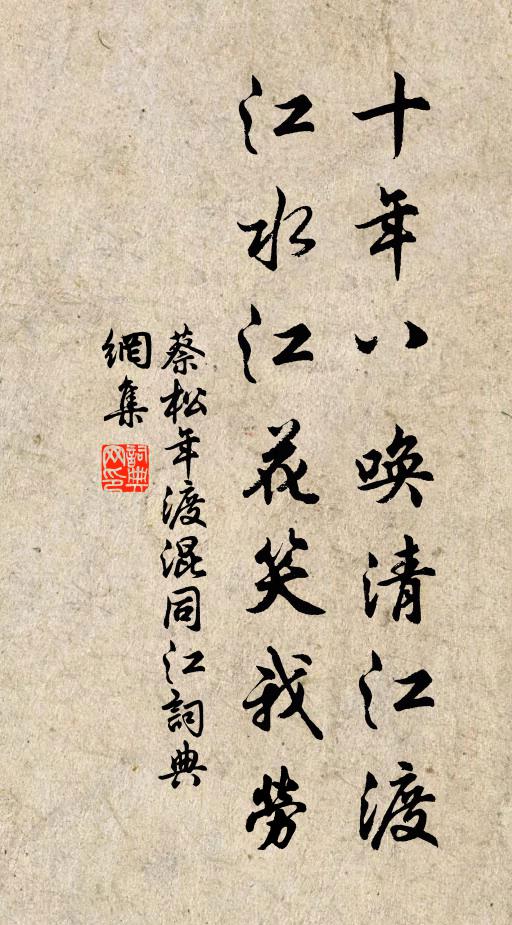 十年八喚清江渡
江水江花笑我勞
蔡松年渡混同江詞典
網集
詞典网印